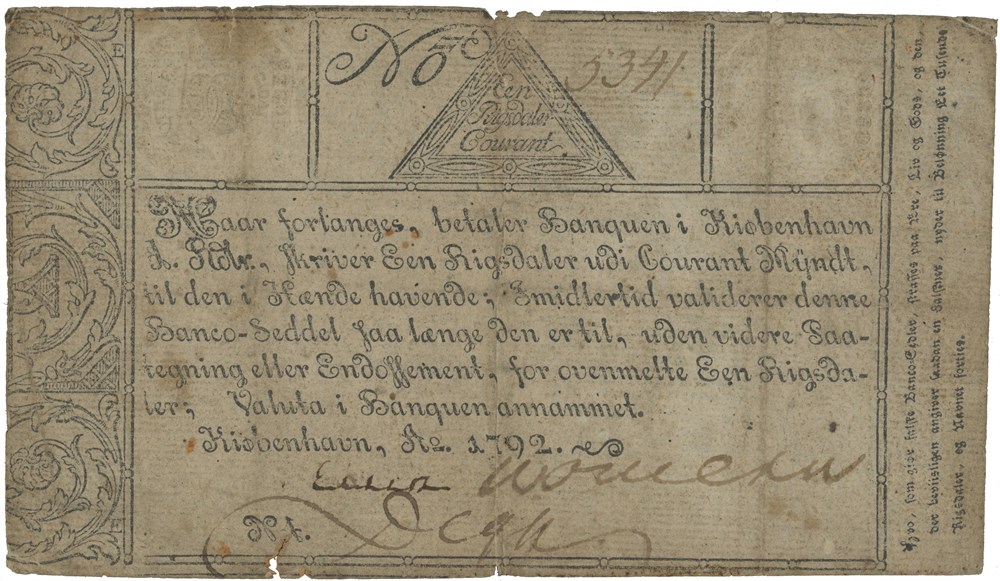 No 5341
Een
Rigsdaler
Courant
Naar forlanges, betaler Banquen i Kiøbenhavn
1. Rdlr., skriver Een Rigsdaler udi Courant Myndt,
til den i Hænde havende; Imidlertid validerer denne
Banco-Seddel saa længe den er til, uden videre Paa-
tegning eller Endossement, for ovenmelte Een Rigsda-
ler; Valuta i Banquen annammet.
Kiøbenhavn, Ao. 1792.
N t.
E
E
E
Hvo, som giør falske BancoSedler, straffes paa Ære, Liv og Gods, og den,
der beviisligen angiver saadan en Falskner, nyder til Belønning Tet Tusende
Rigsdaler, og Navnet forties.